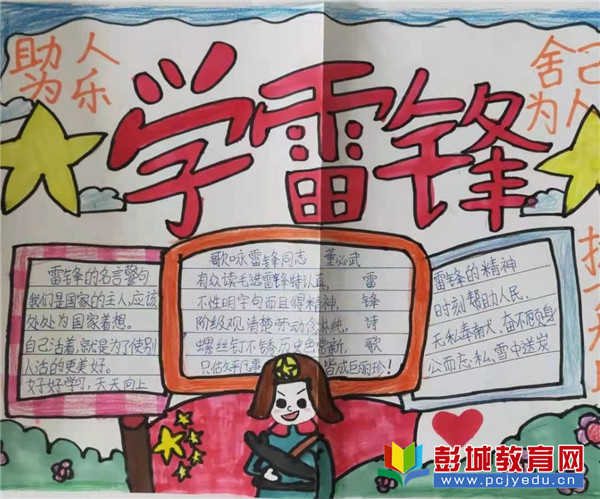 助人
为乐
学雷锋
舍己
为人
雷锋的名言警句
我们是国家的主人,应该
处处为国家着想。
自己活着,就是为了使别
人活的更美好。
好好学习,天天向上
歌咏雷锋同志 董必武
有众读毛选,雷锋特认真,
不惟明字句,而且得精神,
阶级观清楚,劳动念
螺丝钉不锈,历史色常新,
只
皆成巨
雷
锋
诗
歌
雷锋的精神
时刻帮助人民,
无私奉献、奋不顾身
公而忘私、雪中送炭
彭城教育网
www.pcjyedu.cn